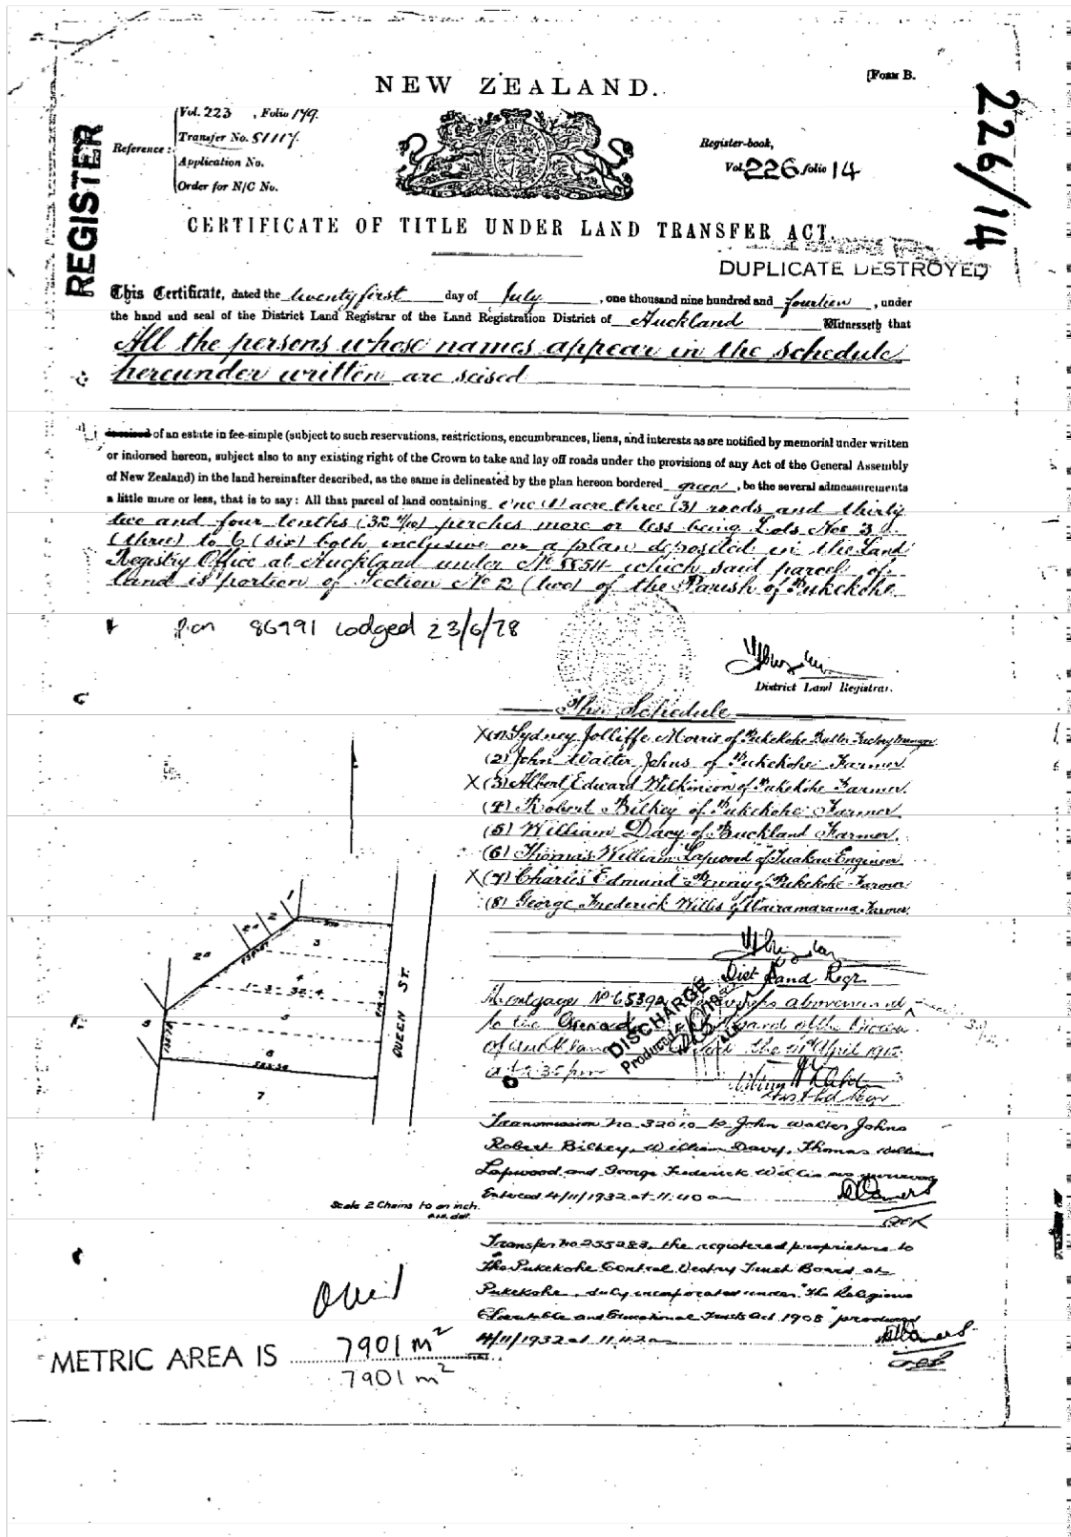 [Form B.
NEW ZEALAND.
226/14
REGISTER
Reference:
Vol. 223, Folio 179.
Transfer No. 51117.
Application No.
Order for N/C No.
Register-book,
Vol. 226 folio 14
CERTIFICATE OF TITLE UNDER LAND TRANSFER ACT.
DUPLICATE DESTROYED
This Certificate, dated the twenty first day of July, one thousand nine hundred and fourteen, under
the hand and seal of the District Land Registrar of the Land Registration District of Auckland Witnesseth that
All the persons whose names appear in the schedule
hereunder written are seised
of an estate in fee-simple (subject to such reservations, restrictions, encumbrances, liens, and interests as are notified by memorial under written
or indorsed hereon, subject also to any existing right of the Crown to take and lay off roads under the provisions of any Act of the General Assembly
of New Zealand) in the land hereinafter described, as the same is delineated by the plan hereon bordered green, be the several admeasurements
a little more or less, that is to say: All that parcel of land containing one (1) acre three (3) roods and thirty
two and four tenths (32 4/10) perches more or less being Lots Nos 3
(three) to 6 (six) both inclusive on a plan deposited in the Land
Registry Office at Auckland under No which said parcel of
land is portion of Section No 2 (two) of the Parish of Pukekohe
Plan 86991 Lodged 23/6/78
District Land Registrar.
The Schedule
X (1) Sydney Jolliffe Morris of Pukekohe Butter Factory Manager
(2) John Walter Johns of Pukekohe Farmer
X (3) Albert Edward Wilkinson of Pukekohe Farmer
(4) Robert Bilkey of Pukekohe Farmer
(5) William Davy of Buckland Farmer
(6) Thomas William Lapwood of Tuakau Engineer
X (7) Charles Edmund Penny of Pukekohe Farmer
(8) George Frederick Willis of Wairamarama Farmer
Dist Land Regr
1
2
3
4
1-3-32.4
5
6
7
QUEEN ST.
Mortgage No 65392 abovenamed
to the
of Auckland April 1915
at 2.35 pm
DISCHARGE
Produced
Transmission No. 32010 to John Walter Johns
Robert Bilkey, William Davy, Thomas William
Lapwood and George Frederick Willis as survivors
Entered 4/11/1932 at 11.40 am
Scale 2 Chains to an inch.
Transfer No 255283, the registered proprietors to
The Pukekohe Central Vestry Trust Board at
Pukekohe, duly incorporated under "The Religious
Charitable and Educational Trusts Act 1908" produced
4/11/1932 at 11.42 am
METRIC AREA IS 7901 m²
7901 m²